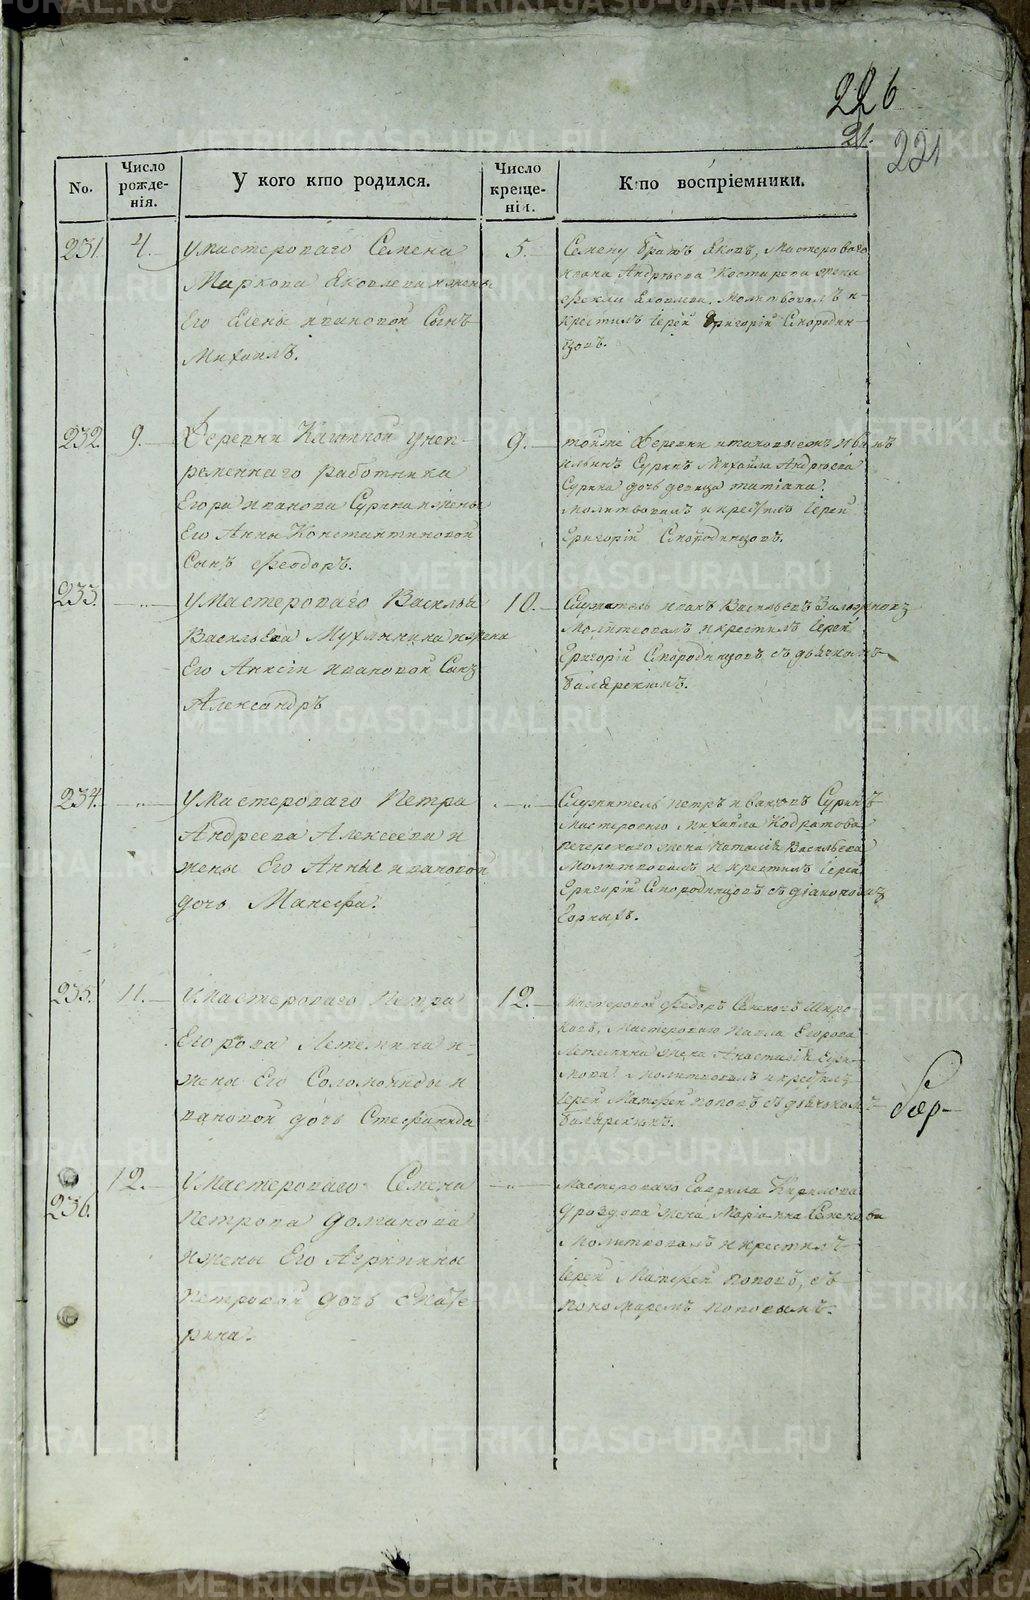 226
21.
221
No.
Число рожде-нія.
У кого кто родился.
Число креще-ніи.
Кто воспріемники.
231.
4.
У мастероваго Семена
Маркова Яковлева и жены
Его Елены Ивановой Сынъ
Михаилъ.
5.
Семену братъ Яковъ, Мастероваго
Ивана Андреева Костарева жена
Фекла Яковлева. Молитвовалъ и
крестилъ Іерей Григорій Смородин-
цовъ.
232.
9.
Деревни Катиной у неп-
ременнаго работника
Егора Иванова Сурина и жены
Его Анны Константиновой
Сынъ Феодоръ.
9.
тойже Деревни
Ильинъ Суринъ Михайла Андреева
Сурина дочь девица татіана.
Молитвовалъ и крестилъ Іерей
Григорій Смородинцовъ.
233.
У Мастероваго Василья
Васильева Мухлынина и жены
Его Анисіи Ивановой Сынъ
Александръ
10.
Служитель Иванъ Васильевъ
Молитвовалъ и крестилъ Іерей
Григорій Смородинцовъ съ дьячкомъ
234.
У Мастероваго Петра
Андреева Алексеева и
жены Его Анны Ивановой
дочь Манефа.
Служитель петръ Ивановъ Суринъ
Мастероваго Михайла Кодратова
печерскаго жена Наталія Васильева
Молитвовалъ и крестилъ Іерей
Григорій Смородинцовъ съ діакономъ
Горныхъ.
235.
11.
У мастероваго Петра
Егорова Летемина и
жены Его Соломониды И
вановой дочь Стефанида
12.
Мастеровой Федоръ Широ-
ковъ, Мастероваго Павла Егорова
Летемина жена Анастасія Ефи-
мова. Молитвовалъ и крестилъ
Іерей Матфей поповъ съ дьячкомъ
236.
12.
У мастероваго Семена
Петрова Доманова
и жены Его Агрипины
Петровой дочь Екате-
рина.
Мастероваго Гаврила Кирилова
Дроздова жена Маріанна Семенова
Молитвовалъ и крестилъ
Іерей Матфей поповъ, съ
пономаремъ поповымъ.
METRIKI.GASO-URAL.RU